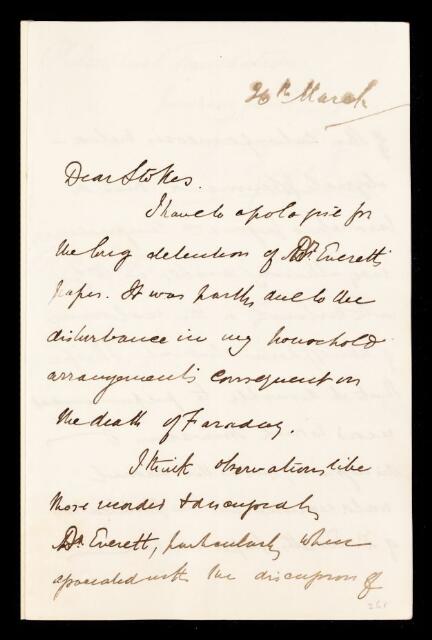 26th March
Dear Stokes.
I have to apologise for
the long detention of Dr. Everett's
paper. It was partly due to the
disturbance in my household
arrangements consequent on
the death of Faraday.
I think observations like
those recorded & discussed by
Dr. Everett, particularly when
associated with the discussion of